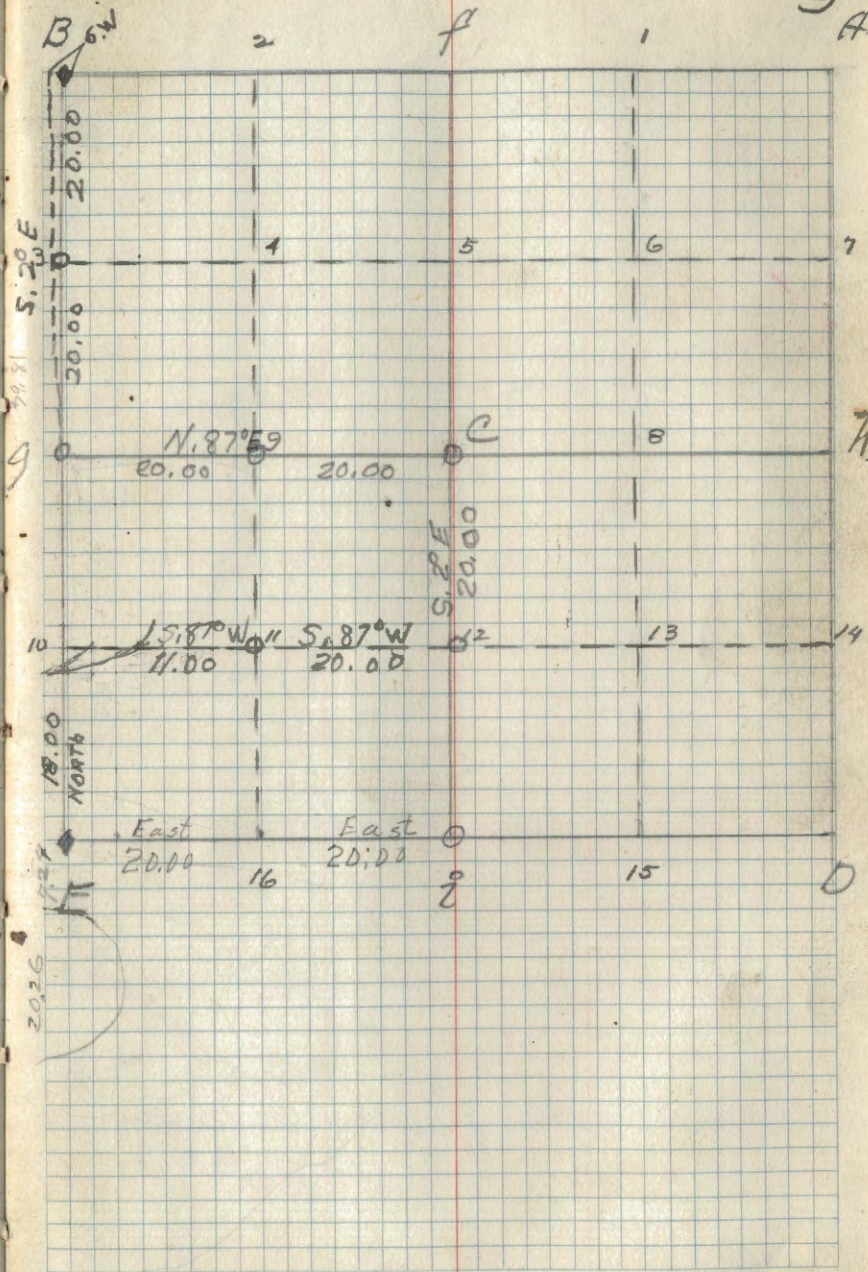 B 6.W 2 f 1 A
20.00
S. 2° E
3 4 5 6 7
20.00
39.81
N. 87° E 9 C 8
20.00 20.00
S. 2° E
20.00
10 S. 87° W 11 S. 87° W 12 13 14
11.00 20.00
18.00
NORTH
East East
20.00 20.00
E 16 i 15 D
20.26